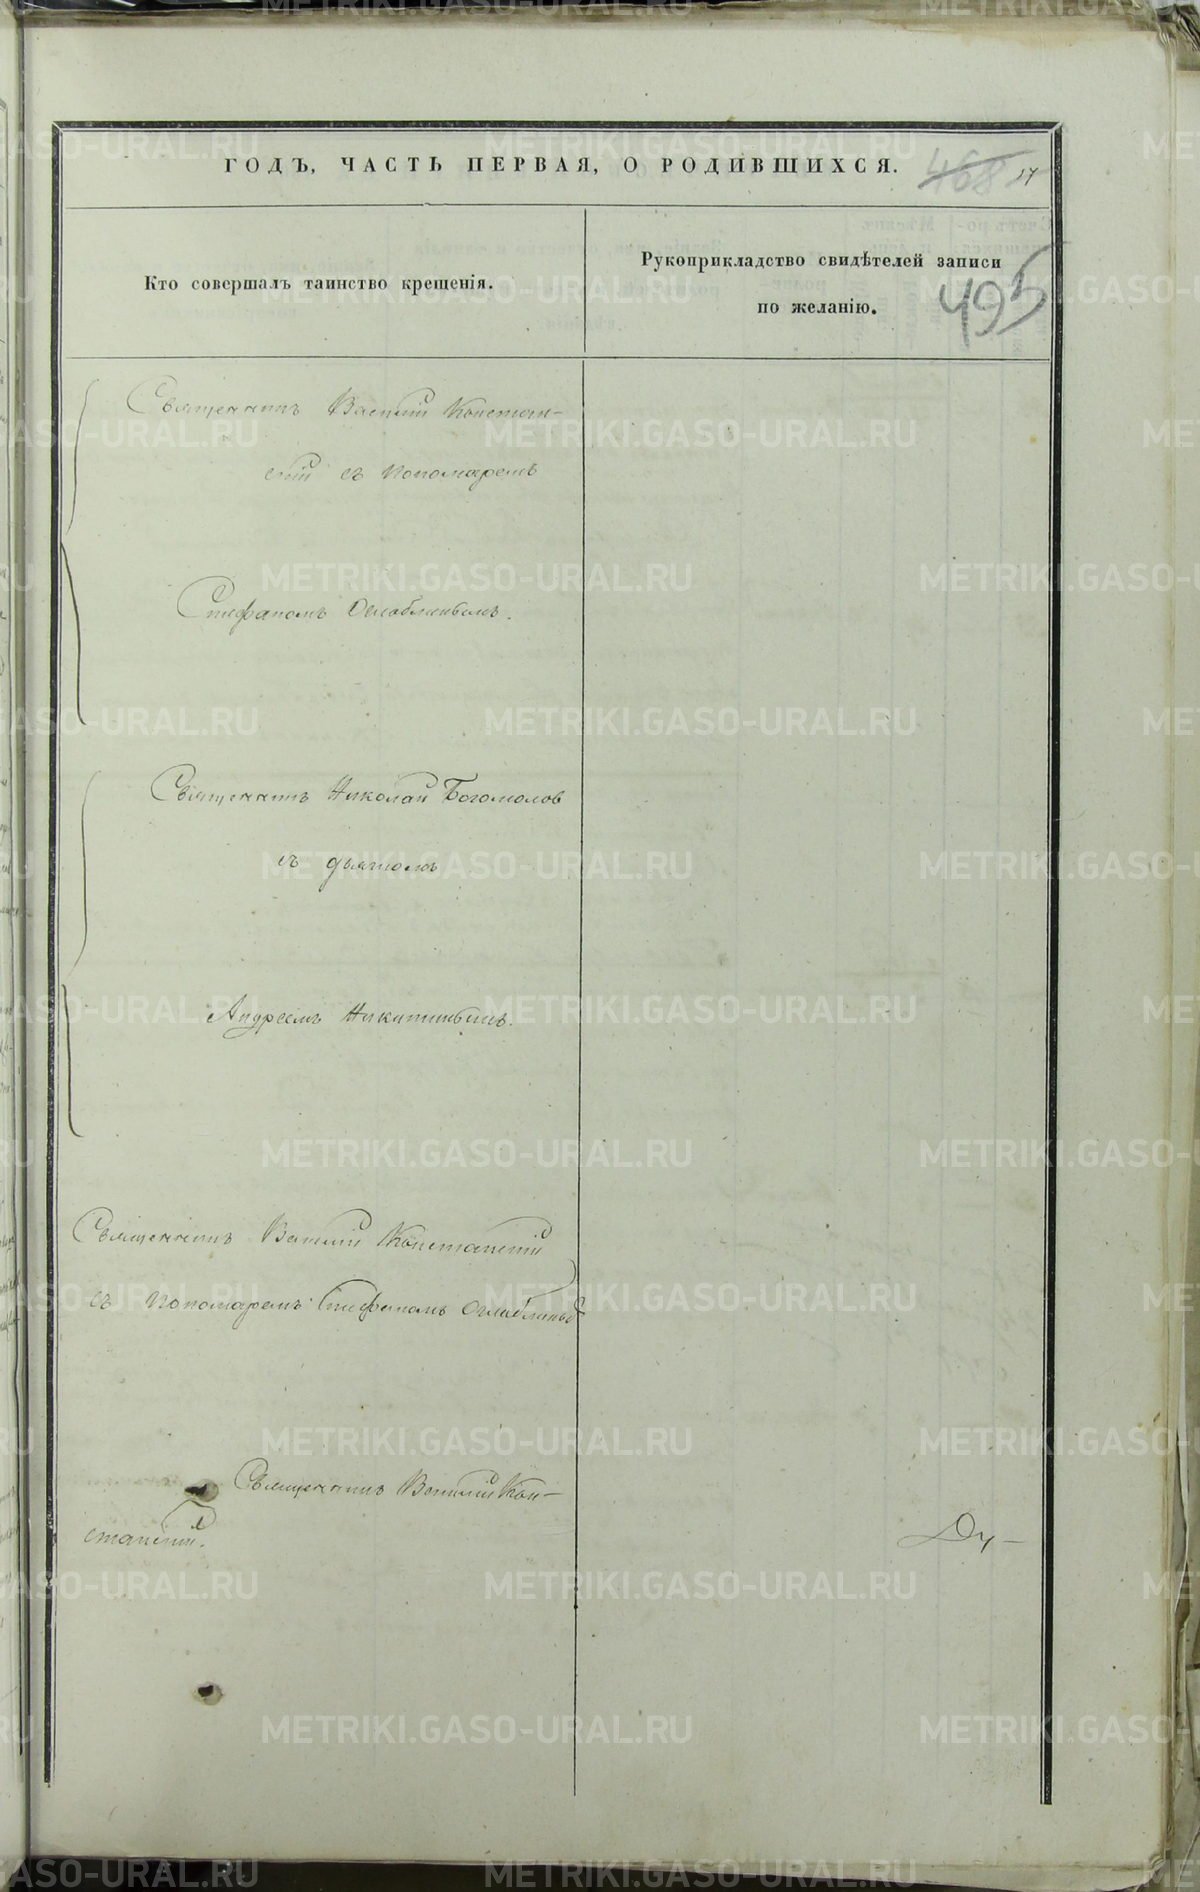 ГОДЪ, ЧАСТЬ ПЕРВАЯ, О РОДИВШИХСЯ.
468 17
Кто совершалъ таинство крещенія.
Рукоприкладство свидѣтелей записи
по желанію.
495
Священникъ Василій Констан-
скій съ пономаремъ
Стефаномъ Оглоблинымъ.
Священникъ Николай Богомолов
съ дьячкомъ
Андреемъ Никитинымъ.
Священникъ Василій Констанскій
съ пономаремъ Стефаномъ Оглоблины
Священникъ Василій Кон-
станскій.
METRIKI.GASO-URAL.RU